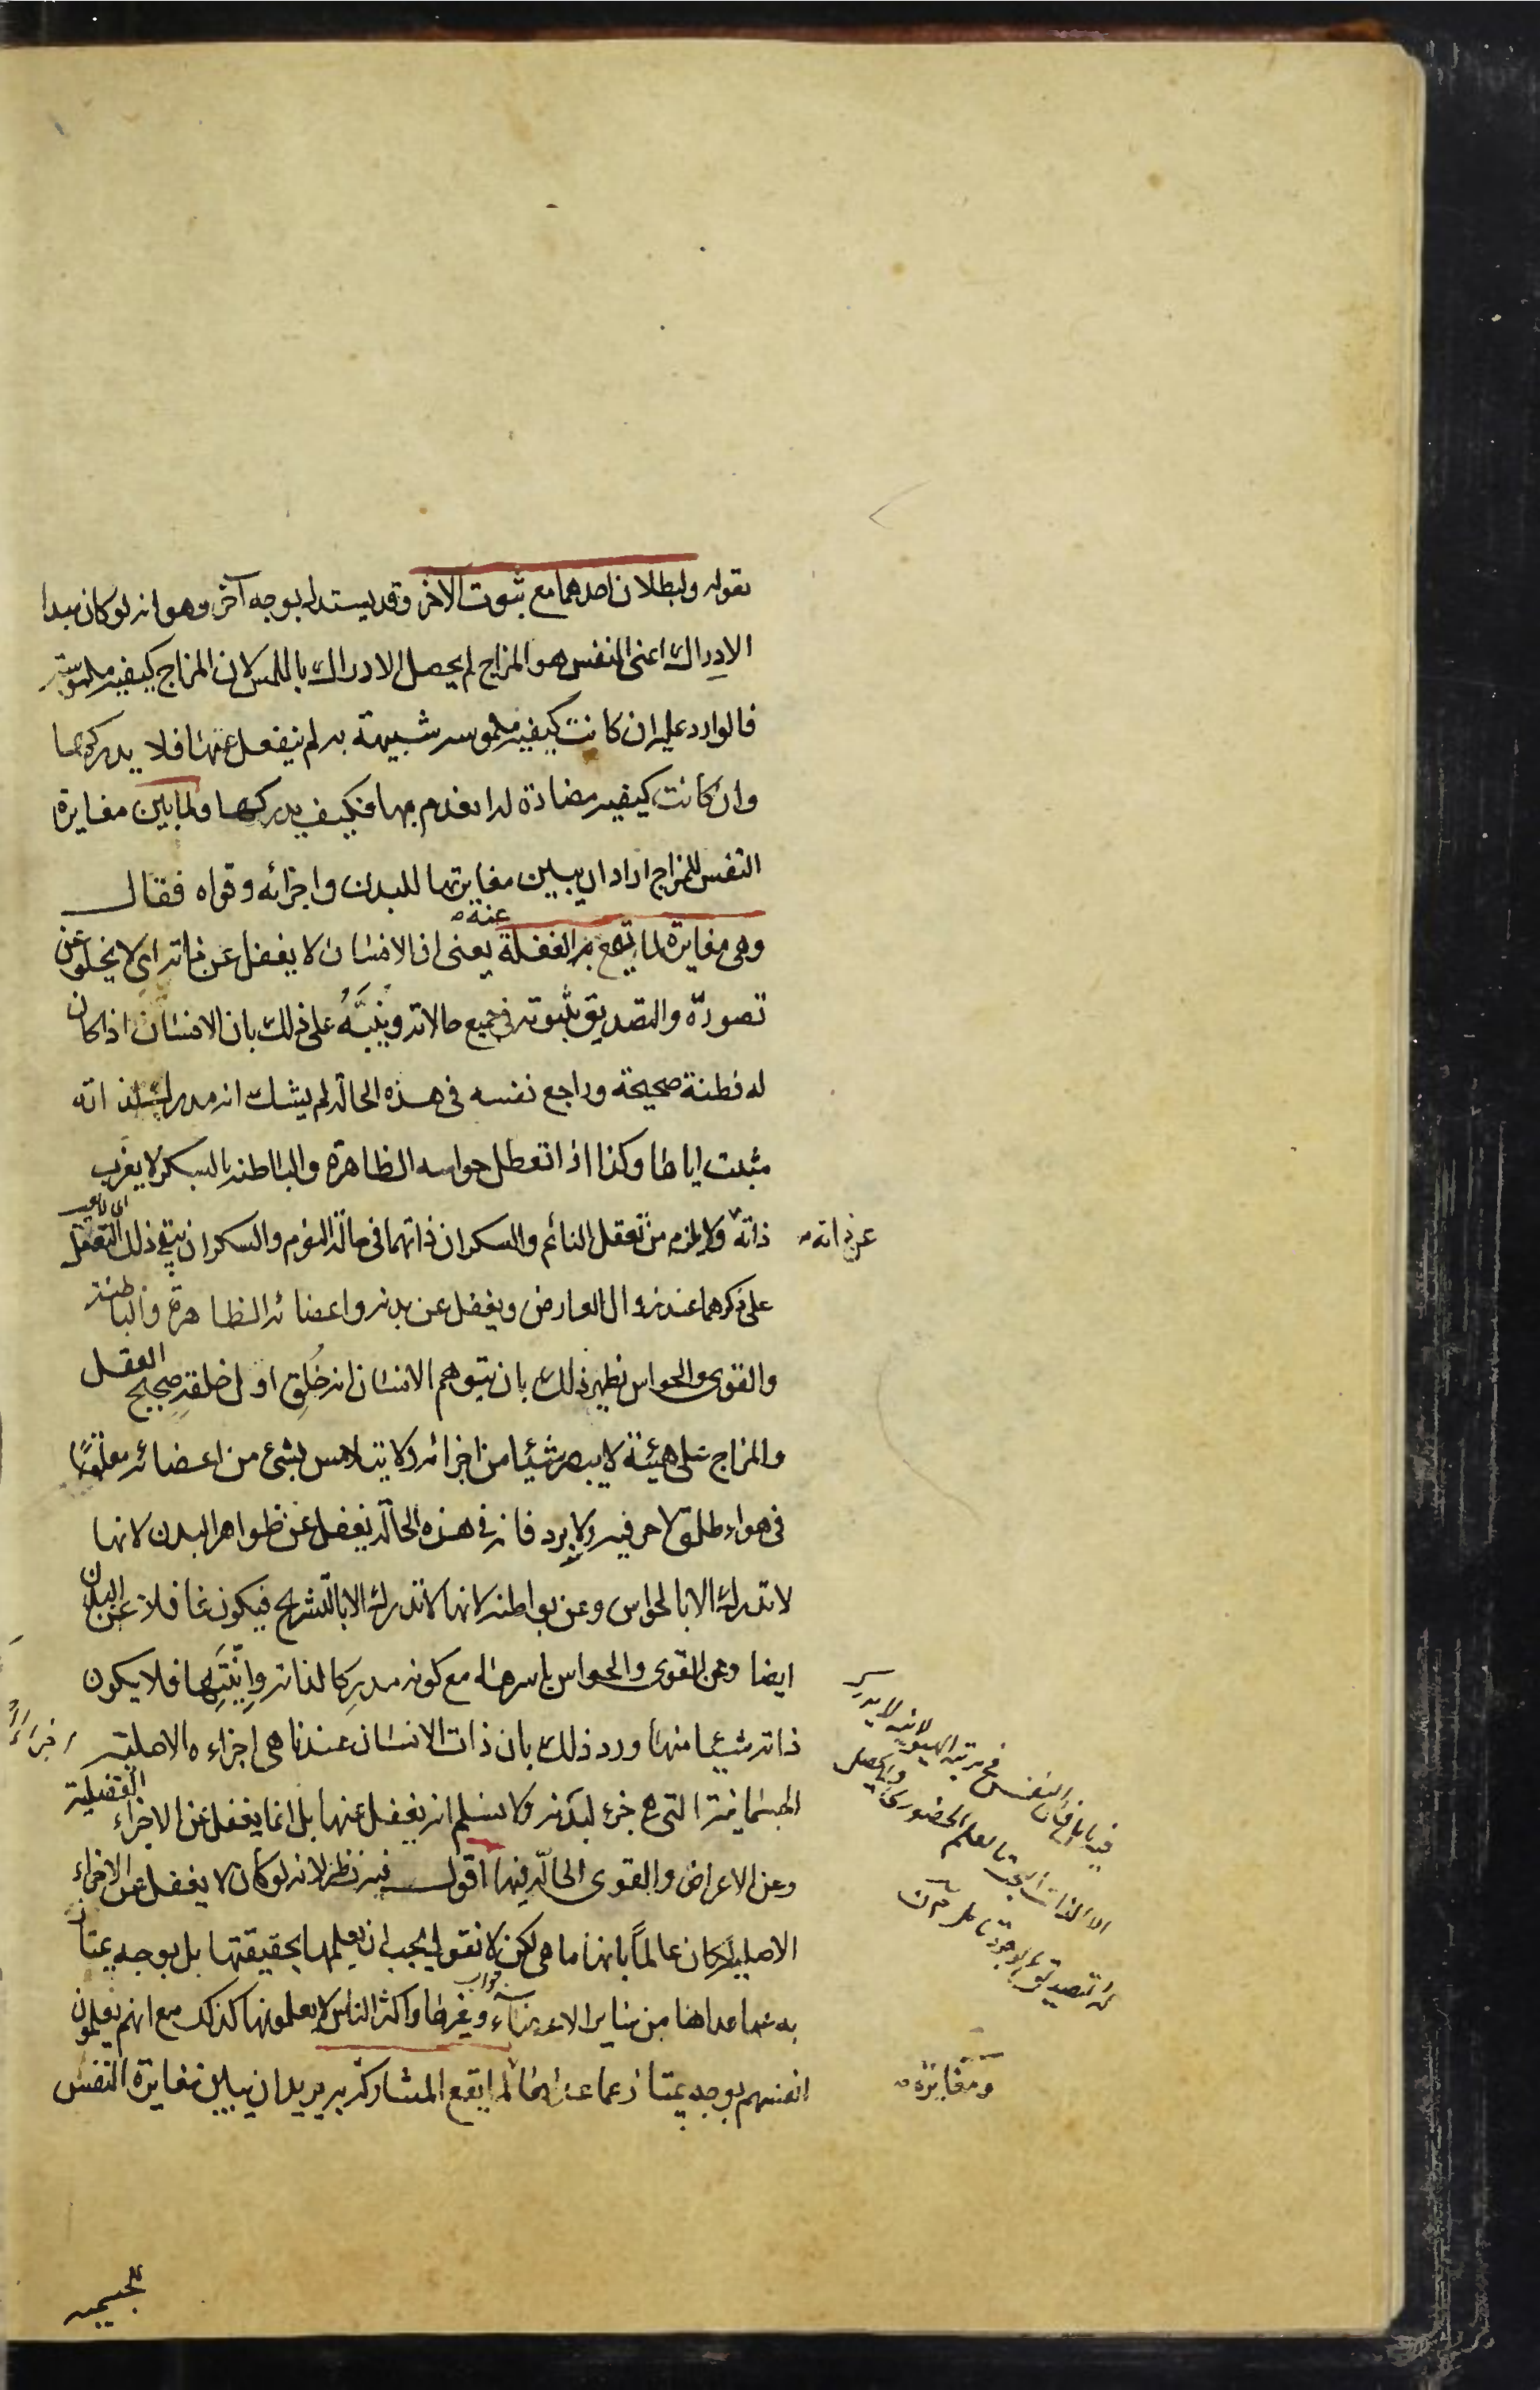 بقوله ولبطلان احدهما مع ثبوت الآخر وقد يستدل بوجه آخر وهو انه لو كان مبدا
الادراك اعنى النفس هو المزاج لم يحصل الادراك باللمس لان المزاج كيفية ملموسة
فالوارد عليه ان كانت كيفية ملموسة شبيهة به لم ينفعل عنها فلا يدركها
وان كانت كيفية مضادة له انعدم بها فكيف يدركها ولما بين مغايرة
النفس للمزاج اراد ان يبين مغايرتها للبدن واجزائه وقواه فقال
وهى مغايرة لما يقع الغفلة عنه يعنى ان الانسان لا يغفل عن ذاته اى لا يخلو عن
تصوره والتصديق بثبوته فى جميع حالاته وينبّه على ذلك بان الانسان اذا كان
له فطنة صحيحة وراجع نفسه فى هذه الحالة لم يشك انه مدرك لذاته
مثبت اياها وكذا اذا تعطل حواسه الظاهرة والباطنة بالسكر لا يعزب
ذاته عن ذاته ولا يلزم من تعقل النائم والسكران ذاتهما فى حالة النوم والسكر ان يبقى ذلك التعقل
على ذكرهما عند زوال العارض ويغفل عن بدنه واعضائه الظاهرة والباطنة
والقوى والحواس نظير ذلك بان يتوهم الانسان انه خُلِق اول خلقة صحيح العقل
والمزاج على هيئة لا يبصر شيئا من اجزائه ولا يتلامس بشئ من اعضائه معلّقًا
فى هواء طلق لا حر فيه ولا برد فانه فى هذه الحالة يغفل عن ظواهر البدن لانها
لا تدرك الا بالحواس وعن بواطنه لانها لا تدرك الا بالتشريح فيكون غافلا عن البدن
ايضا وعن القوى والحواس باسرها مع كونه مدركا لذاته وانّيتها فلا يكون
ذاته شيئا منها ورد ذلك بان ذات الانسان عندنا هى اجزاءه الاصلية
الجسمانية التى هى جزء لبدنه ولا نسلم انه يغفل عنها بل انما يغفل عن الاجزاء الفضلية
وعن الاعراض والقوى الحالّة فيها اقول فيه نظر لانه لو كان لا يغفل عن الاجزاء
الاصلية لكان عالماً بانها ما هى لكن لا نقول يجب ان يعلمها بحقيقتها بل بوجه يمتاز
به عما عداها من سائر الاعضاء وغيرها واكثر الناس لا يعلمونها كذلك مع انهم يعلمون
انفسهم بوجه يمتاز عما عداها لما يقع المشاركة به يريد ان يبين مغايرة النفس
ومغايرة
للجسمية